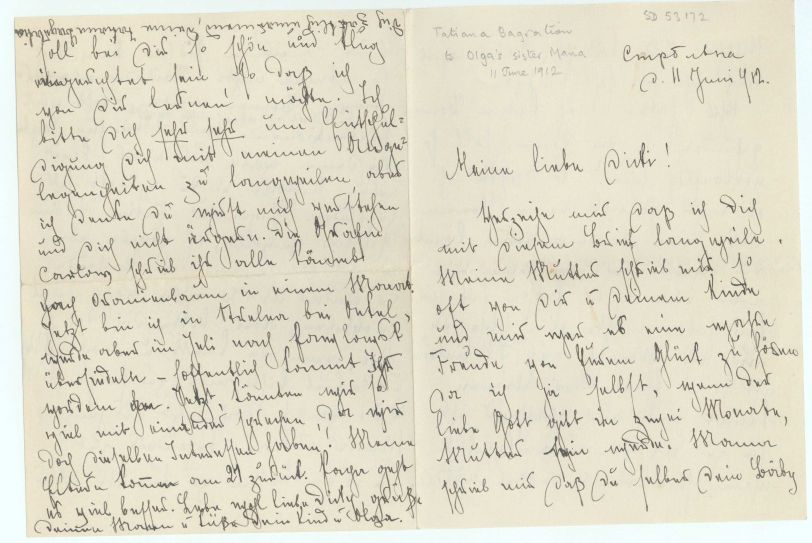 SD 53172
Tatiana Bagration
to Olga's sister Mana
11 June 1912
Стрѣльна
d. 11 Juni 912.
Meine liebe Dicki!
Verzeihe mir daß ich Dich
mit diesem Brief langweile.
Meine Mutter schrieb mir so
oft von Dir u Deinem Kinde
und mir war es eine wahre
Freude von Eurem Glück zu hören
da ich ja selbst, wenn der
liebe Gott gibt in zwei Monate,
Mutter sein werde. Mama
schrieb mir daß Du selber Dein Baby
soll bei Dir so schön und klug
eingerichtet sein so daß ich
von Dir lernen möchte. Ich
bitte Dich sehr sehr um Entschul=
digung Dich mit meinen Ange=
legenheiten zu langweilen, aber
ich denke Du wirst mich verstehen
und Dich nicht ärgern. Die Gräfin
Carlow schrieb ihr alle kommt
nach Oranienbaum in einem Monat.
Jetzt bin ich in Strelna bei Onkel,
werde aber im Juli nach Pawlowsk
übersiedeln – hoffentlich kommt Ihr
vordem an. Jetzt, könnten wir so
viel mit einander sprechen, da wir
doch dieselben Interessen haben! Meine
Eltern kommen am 21 zurück. Papa geht
es viel besser. Lebe wohl liebe Dicki, grüße
Deinen Mann u küße Dein Kind u Olga.
Deine Tatiana